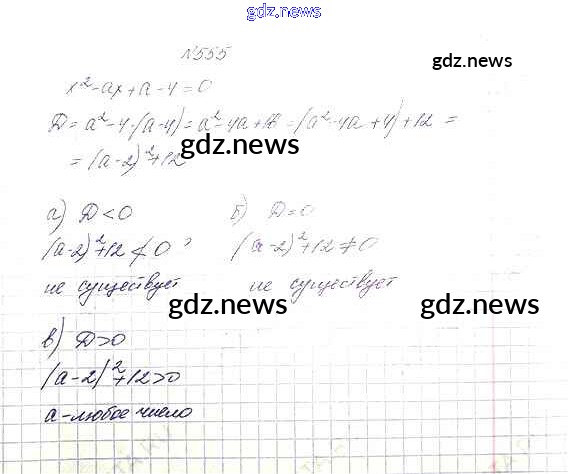 gdz.news
№555
gdz.news
x²-ax+a-4=0
D=a²-4·(a-4)=a²-4a+16=(a²-4a+4)+12=
=(a-2)²+12
gdz.news
а) D<0 б) D=0
(a-2)²+12≮0, (a-2)²+12≠0
не существует не существует
gdz.news gdz.news
в) D>0
(a-2)²+12>0
a-любое число